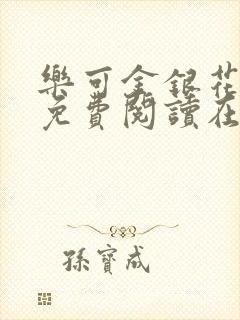 樂可金銀花
免費閱讀在
孫寶成